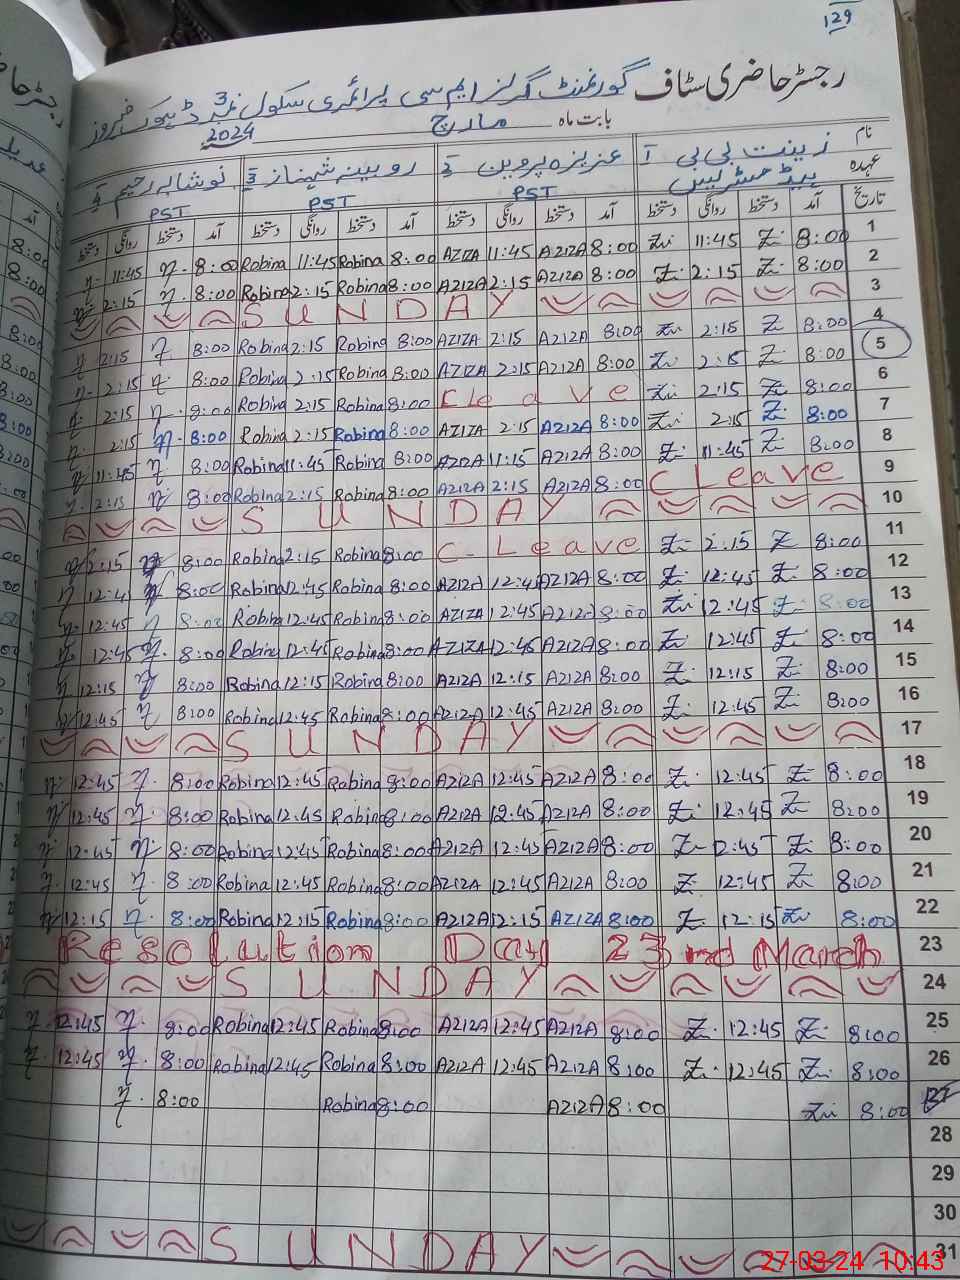 129
رجسٹر حاضری سٹاف گورنمنٹ گرلز ایم سی پرائمری سکول نمبر 3
بابت ماہ مارچ 2024
نام زینت بی بی 1 عزیزہ پروین 2 روبینہ شہناز 3 نوشابہ رحیم 4
عہدہ ہیڈ مسٹریس PST PST PST
تاریخ آمد دستخط روانگی دستخط آمد دستخط روانگی دستخط آمد دستخط روانگی دستخط آمد دستخط روانگی دستخط
11:45 8:00 Robina 11:45 Robina 8:00 AZIZA 11:45 AZIZA 8:00 Zi 11:45 Z 8:00 1
2:15 8:00 Robina 2:15 Robina 8:00 AZIZA 2:15 AZIZA 8:00 Z 2:15 Z 8:00 2
S U N D A Y 3
2:15 8:00 Robina 2:15 Robina 8:00 AZIZA 2:15 AZIZA 8:00 Zi 2:15 Z 8:00 4
2:15 8:00 Robina 2:15 Robina 8:00 AZIZA 2:15 AZIZA 8:00 Zi 2:15 Z 8:00 5
2:15 8:00 Robina 2:15 Robina 8:00 C Leave Zi 2:15 Zi 8:00 6
2:15 8:00 Robina 2:15 Robina 8:00 AZIZA 2:15 AZIZA 8:00 Zi 2:15 Z 8:00 7
11:45 8:00 Robina 11:45 Robina 8:00 AZIZA 11:15 AZIZA 8:00 Zi 11:45 Z 8:00 8
2:15 8:00 Robina 2:15 Robina 8:00 AZIZA 2:15 AZIZA 8:00 C Leave 9
S U N D A Y 10
2:15 8:00 Robina 2:15 Robina 8:00 C. Leave Zi 2:15 Z 8:00 11
12:45 8:00 Robina 12:45 Robina 8:00 AZIZA 12:45 AZIZA 8:00 Zi 12:45 Z 8:00 12
12:45 8:00 Robina 12:45 Robina 8:00 AZIZA 12:45 AZIZA 8:00 Zi 12:45 Z 8:00 13
12:45 8:00 Robina 12:45 Robina 8:00 AZIZA 12:45 AZIZA 8:00 Zi 12:45 Z 8:00 14
12:15 8:00 Robina 12:15 Robina 8:00 AZIZA 12:15 AZIZA 8:00 Z 12:15 Zi 8:00 15
12:45 8:00 Robina 12:45 Robina 8:00 AZIZA 12:45 AZIZA 8:00 Zi 12:45 Zi 8:00 16
S U N D A Y 17
12:45 8:00 Robina 12:45 Robina 8:00 AZIZA 12:45 AZIZA 8:00 Z 12:45 Zi 8:00 18
12:45 8:00 Robina 12:45 Robina 8:00 AZIZA 12:45 AZIZA 8:00 Zi 12:45 Z 8:00 19
12:45 8:00 Robina 12:45 Robina 8:00 AZIZA 12:45 AZIZA 8:00 Z 12:45 Zi 8:00 20
12:45 8:00 Robina 12:45 Robina 8:00 AZIZA 12:45 AZIZA 8:00 Z 12:45 Z 8:00 21
12:15 8:00 Robina 12:15 Robina 8:00 AZIZA 12:15 AZIZA 8:00 Z 12:15 Zi 8:00 22
Resolution Day 23rd March 23
S U N D A Y 24
12:45 8:00 Robina 12:45 Robina 8:00 AZIZA 12:45 AZIZA 8:00 Z 12:45 Zi 8:00 25
12:45 8:00 Robina 12:45 Robina 8:00 AZIZA 12:45 AZIZA 8:00 Z 12:45 Zi 8:00 26
8:00 Robina 8:00 AZIZA 8:00 Zi 8:00 27
28
29
30
S U N D A Y 31
27-03-24 10:43